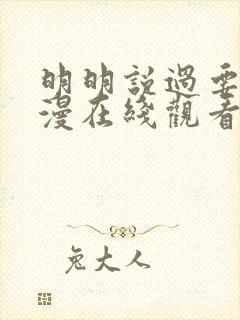 明明說過要
漫在綫觀看
兔大人